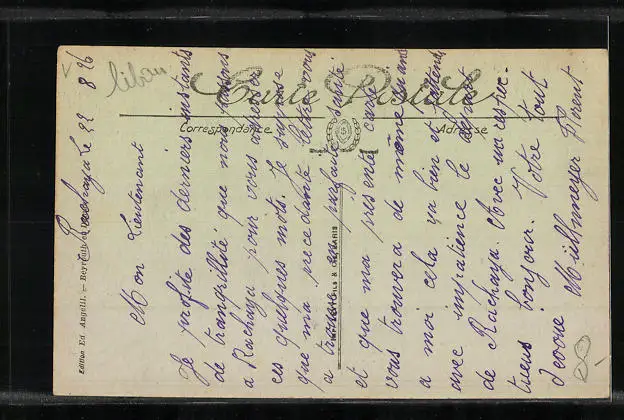 liban
Carte Postale
Correspondance
Adresse
Edition Ed Angelil. — Beyrouth
Rachaya le 22 8 26
Mon Lieutenant
Je profite des derniers instants
de tranquillité que nous passons
a Rachaya pour vous adresser
ces quelques mots. Je suppose
que ma precedante lettre vous
a trouvé en parfaite santé
et que ma presente carte
vous trouvera de même quans
a moi cela va bien et j'attends
avec impatience le départ
de Rachaya. Avec un respec-
tueus bonjour. Votre tout
devoué Muthmeyer Florent